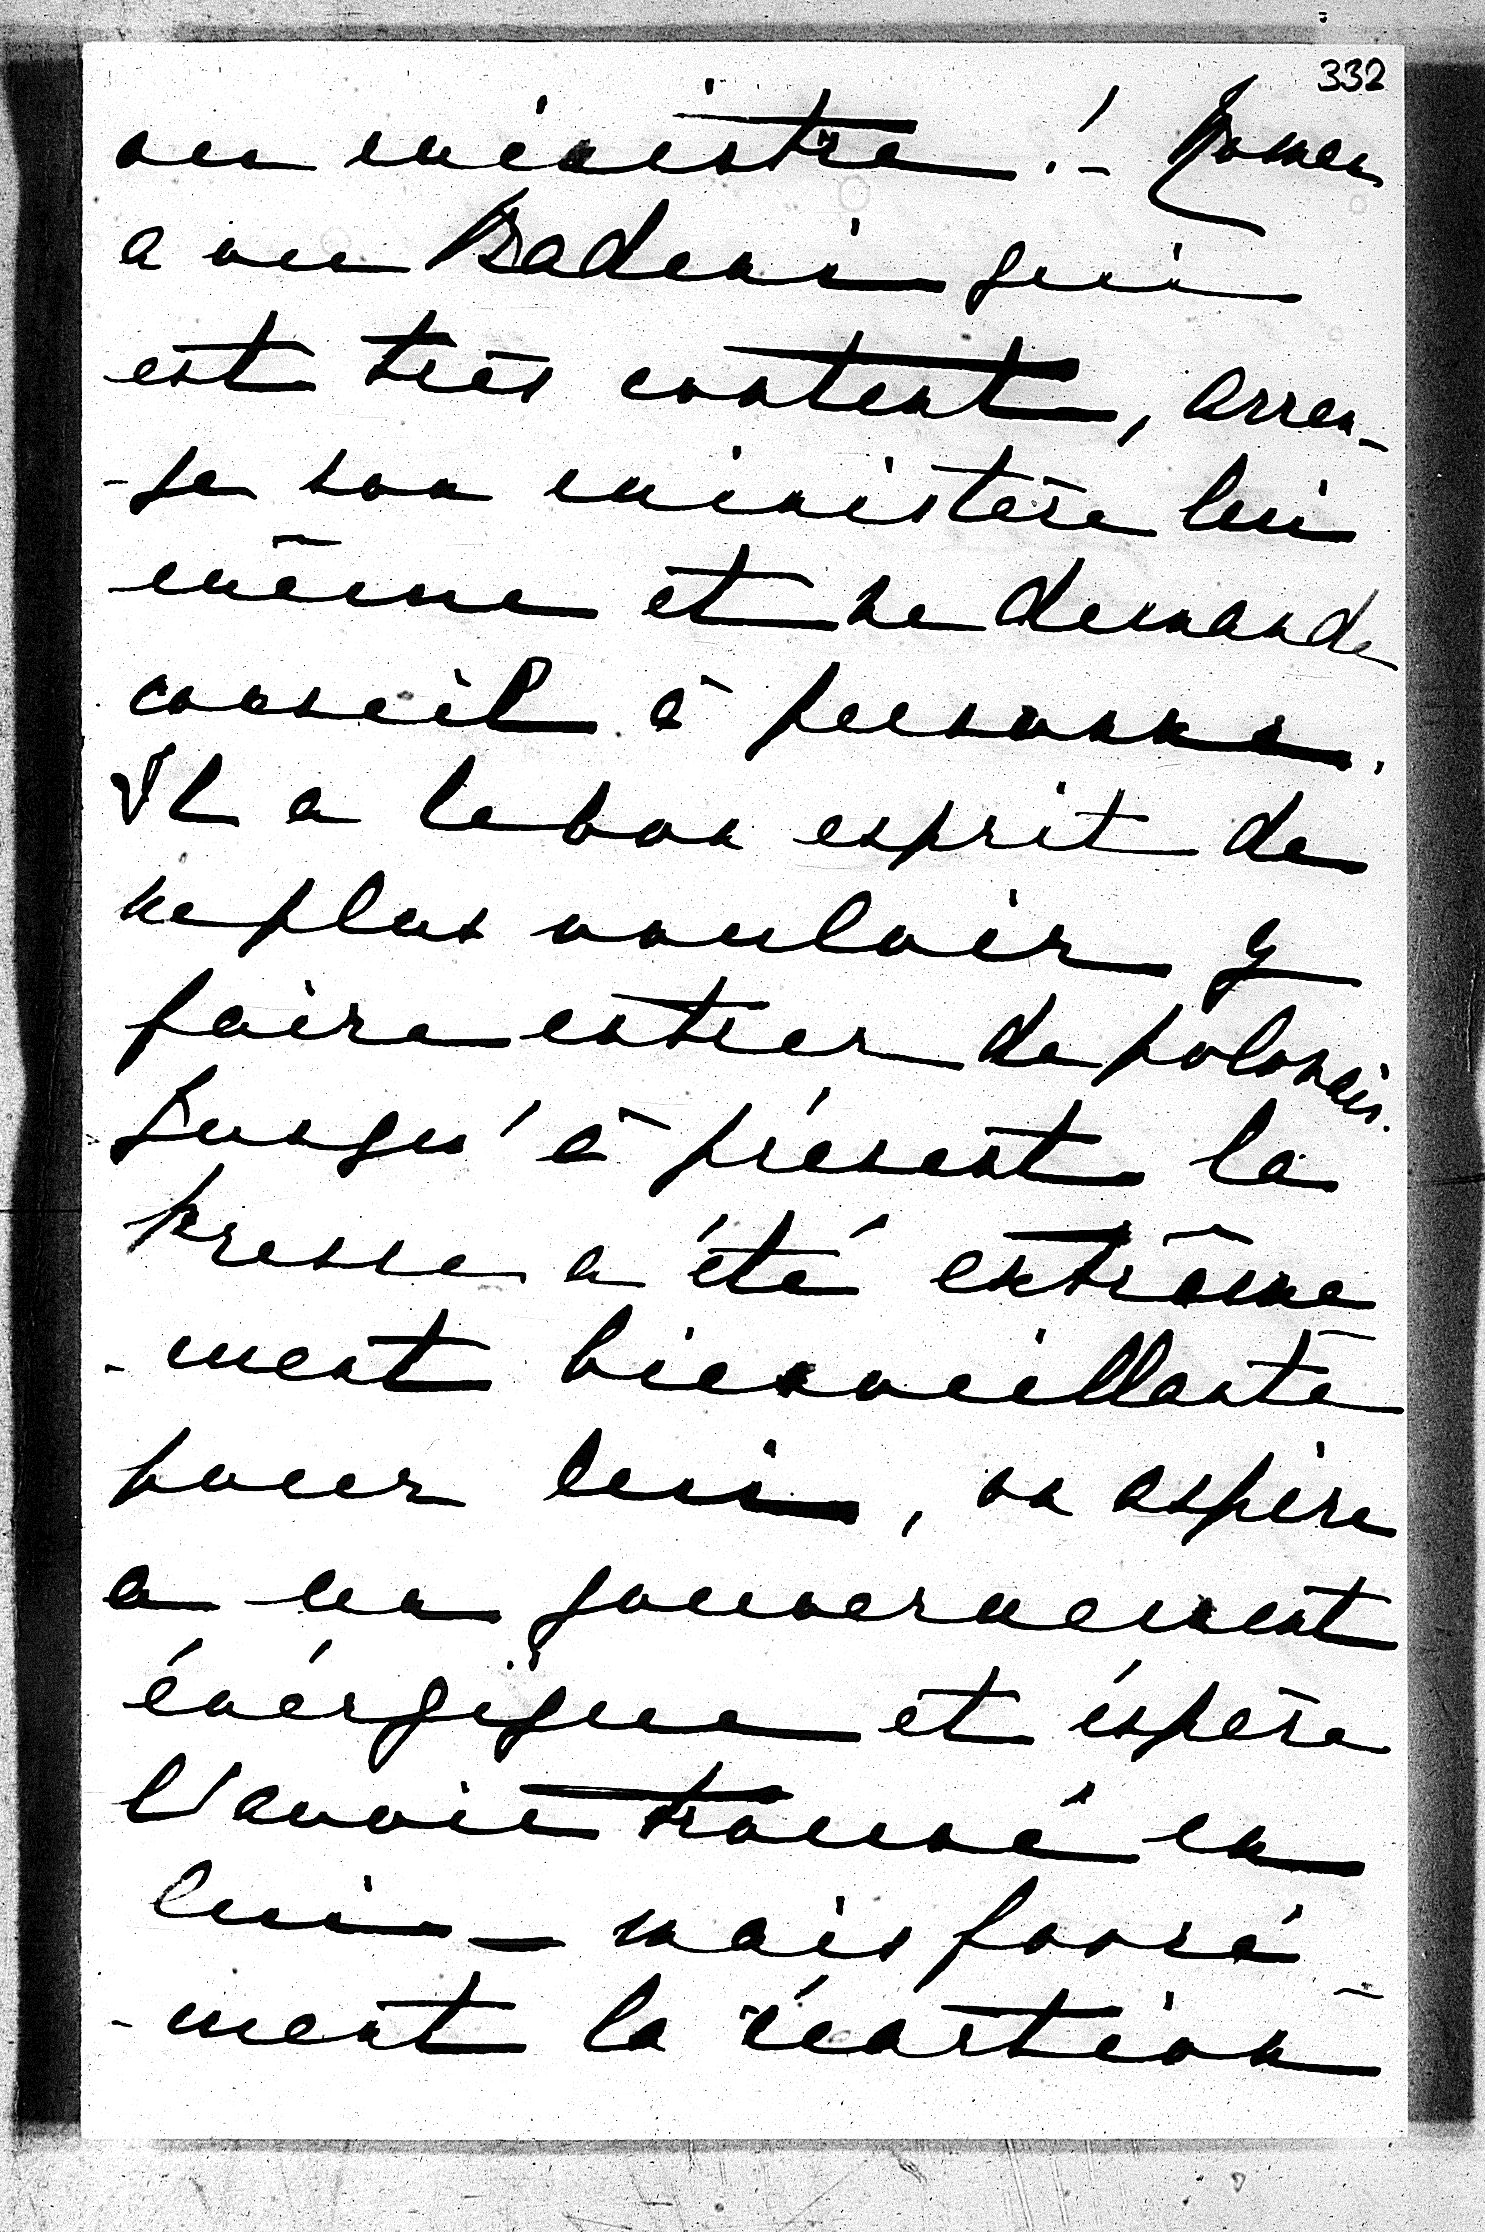 332
ou ministre ! - Roman
a vu Badeni qui
est très content, arran-
-ge son ministère lui
même et ne demande
conseil à personne.
Il a le bon esprit de
ne plus vouloir y
faire entrer de polonais.
Jusqu'à présent la
presse a été extrême
-ment bienveillante
pour lui, on aspire
a un gouvernement
énérgique et éspère
l'avoir trouvé en
lui - mais forcé
-ment la réaction